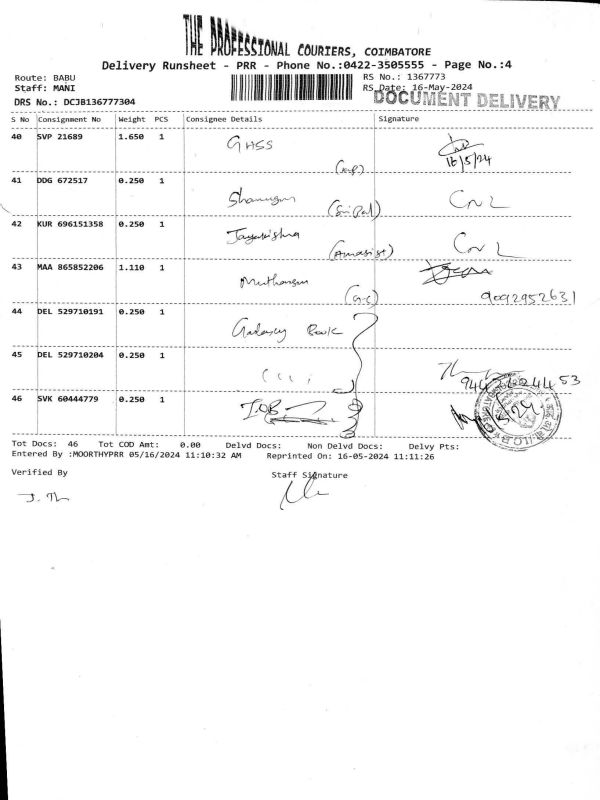 THE PROFESSIONAL COURIERS, COIMBATORE
Delivery Runsheet - PRR - Phone No.:0422-3505555 - Page No.:4
Route: BABU RS No.: 1367773
Staff: MANI RS Date: 16-May-2024
DRS No.: DCJB136777304 DOCUMENT DELIVERY
S No Consignment No Weight PCS Consignee Details Signature
40 SVP 21689 1.650 1 GHSS
16/5/24
41 DDG 672517 0.250 1
CNL
42 KUR 696151358 0.250 1
CNL
43 MAA 865852206 1.110 1
9092952631
44 DEL 529710191 0.250 1 Book
45 DEL 529710204 0.250 1
46 SVK 60444779 0.250 1 I.O.B
Tot Docs: 46 Tot COD Amt: 0.00 Delvd Docs: Non Delvd Docs: Delvy Pts:
Entered By :MOORTHYPRR 05/16/2024 11:10:32 AM Reprinted On: 16-05-2024 11:11:26
Verified By Staff Signature